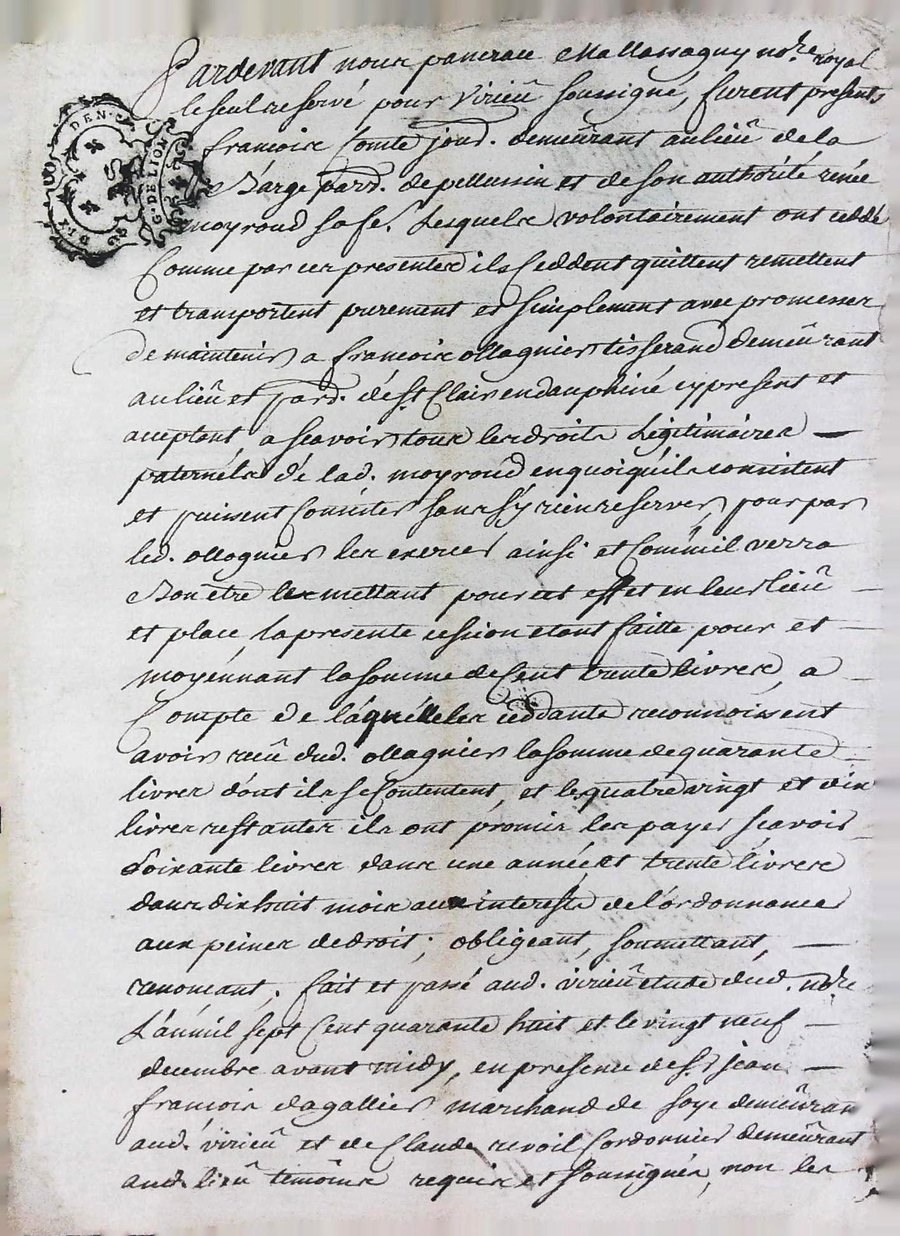 Pardevant nous pancrace Mallassagny no.re royal
le seul reservé pour Virieû soussigné, furent presents
francois Comte jour.d demeûrant au lieû de la
Barge par.d de pellussin et de son authorité renée
moyroud sa fe. Lesquels volontairement ont ceddé
Comme par ces presentes ils Ceddent quittent remettent
et transportent purement et simplement avec promesses
de maintenir a francois ollagnier tisserand demeûrant
au lieû et par.d de S.t Clair en dauphiné cy present et
acceptant, a scavoir tous les droits Légitimaires —
paternéls dé lad. moyroud en quoi qu'ils consistent
et puissent Consister sans s'y rien reserver, pour par
led. ollagnier les exercer ainsi et Comm'il verra
Bon etre les mettant pour cet effet en leur lieû —
et place, la presente cession etant faitte pour et —
moyénnant la somme de Cent trente livres, a —
Compte de láquélle les ceddants reconnoissent
avoir receû dud. ollagnier la somme de quarante
livres dónt ils se Contentent, et les quatre vingt et dix
livres restantes ils ont promis les payer scavoir
Soixante livres dans une année et trente livres
dans dix huit mois aux interests de l'ordonnance
aux peines de droit; obligeant, soumettant, —
renoncant, fait et passé aud. virieû etude dud. no.re
L'an mil sept Cent quarante huit et le vingt neuf —
decembre avant midy, en presence de S.r jean —
francois dagallier marchand de soye demeûran
aud. virieû et de Claude revoil Cordonnier demeûrant
aud. lieû témoins requis et soussignés, non les
DEN.
G. DE LION